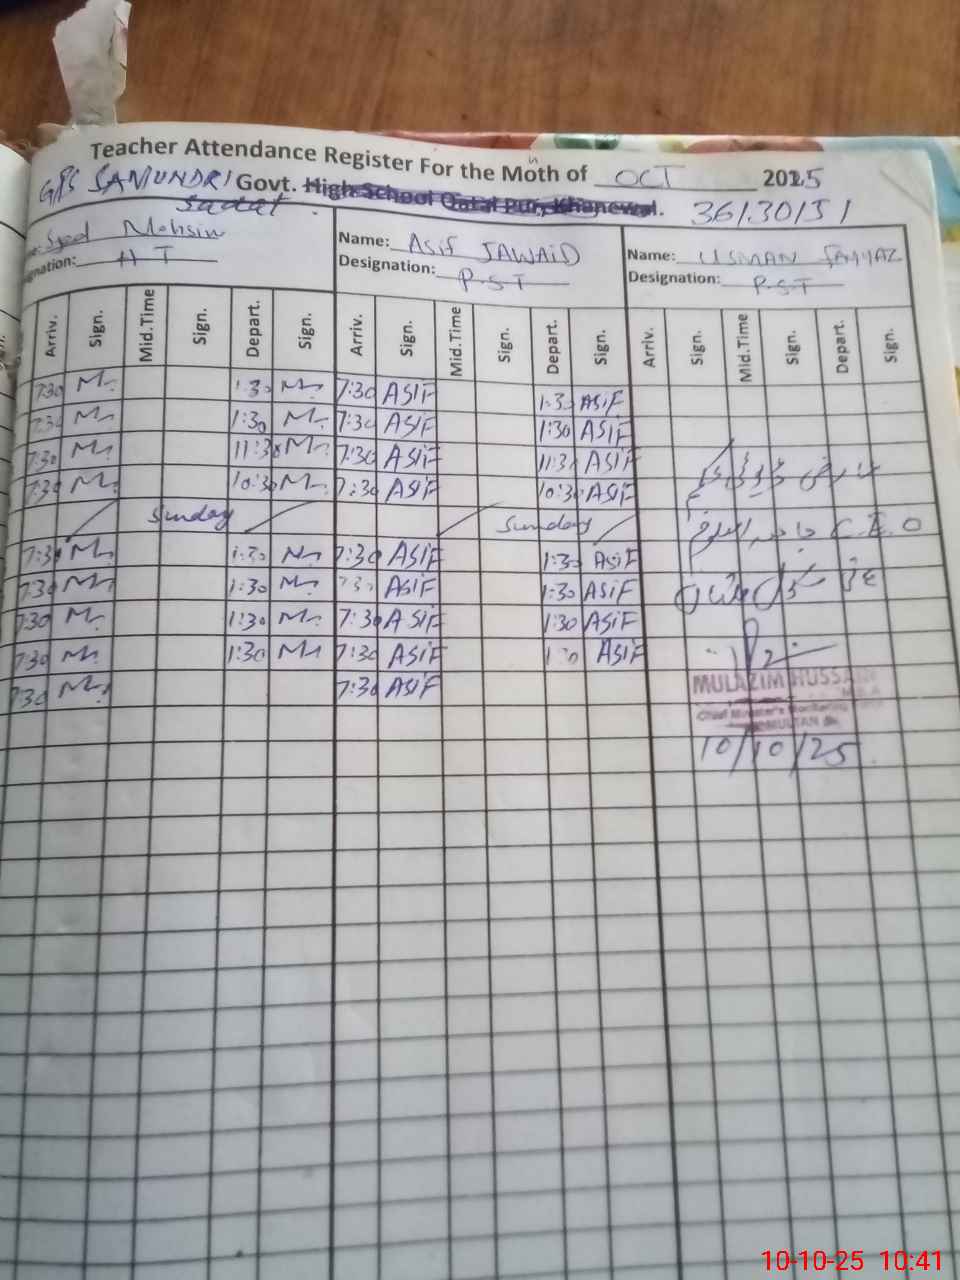 Teacher Attendance Register For the Moth of OCT 2025
in
GPS SAMUNDRI Govt. High School Qatal Pur, Khanewal. 36130151
sadat
Syed Mohsin
Designation: H T
Name: Asif JAWAID
Designation: P.S.T
Name: USMAN
Designation: P.S.T
Arriv. Sign. Mid.Time Sign. Depart. Sign. Arriv. Sign. Mid.Time Sign. Depart. Sign. Arriv. Sign. Mid.Time Sign. Depart. Sign.
7:30 M 1:30 M 7:30 ASIF 1:30 ASIF
7:30 M 1:30 M 7:30 ASIF 1:30 ASIF
7:30 M 11:30 M 7:30 ASIF 11:30 ASIF
7:30 M 10:30 M 7:30 ASIF 10:30 ASIF
Sunday Sunday
7:30 M 1:30 M 7:30 ASIF 1:30 ASIF
7:30 M 1:30 M 7:30 ASIF 1:30 ASIF
7:30 M 1:30 M 7:30 ASIF 1:30 ASIF
7:30 M 1:30 M 7:30 ASIF 1:30 ASIF
7:30 M 7:30 ASIF
C.E.O
MULAZIM HUSSAIN
Chief Minister's Monitoring
MULTAN
10/10/25
10-10-25 10:41